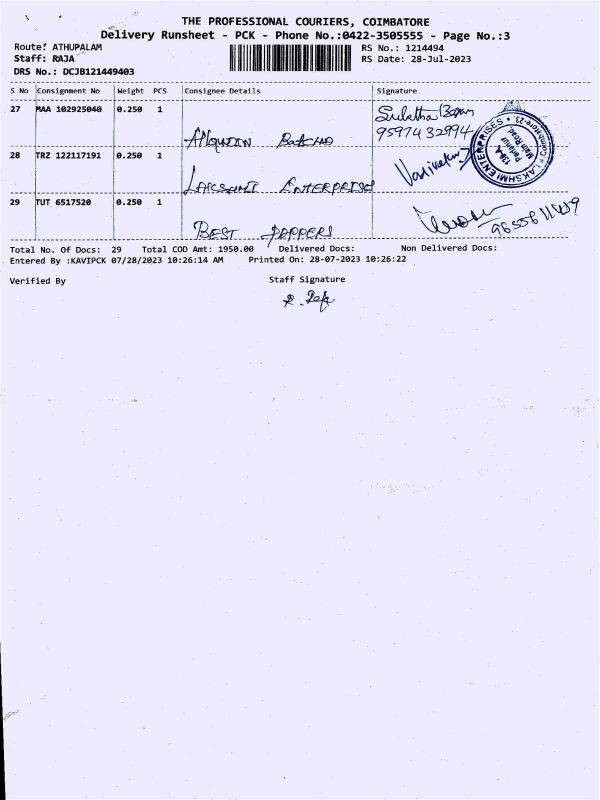 THE PROFESSIONAL COURIERS, COIMBATORE
Delivery Runsheet - PCK - Phone No.:0422-3505555 - Page No.:3
Route: ATHUPALAM
RS No.: 1214494
Staff: RAJA
RS Date: 28-Jul-2023
DRS No.: DCJB121449403
S No Consignment No Weight PCS Consignee Details Signature
27 MAA 102925040 0.250 1
9597432994
28 TRZ 122117191 0.250 1
LAKSHMI ENTERPRISES
LAKSHMI ENTERPRISES
Main Road
29 TUT 6517520 0.250 1
BEST PEPPERS
Total No. Of Docs: 29 Total COD Amt: 1950.00 Delivered Docs: Non Delivered Docs:
Entered By :KAVIPCK 07/28/2023 10:26:14 AM Printed On: 28-07-2023 10:26:22
Verified By Staff Signature